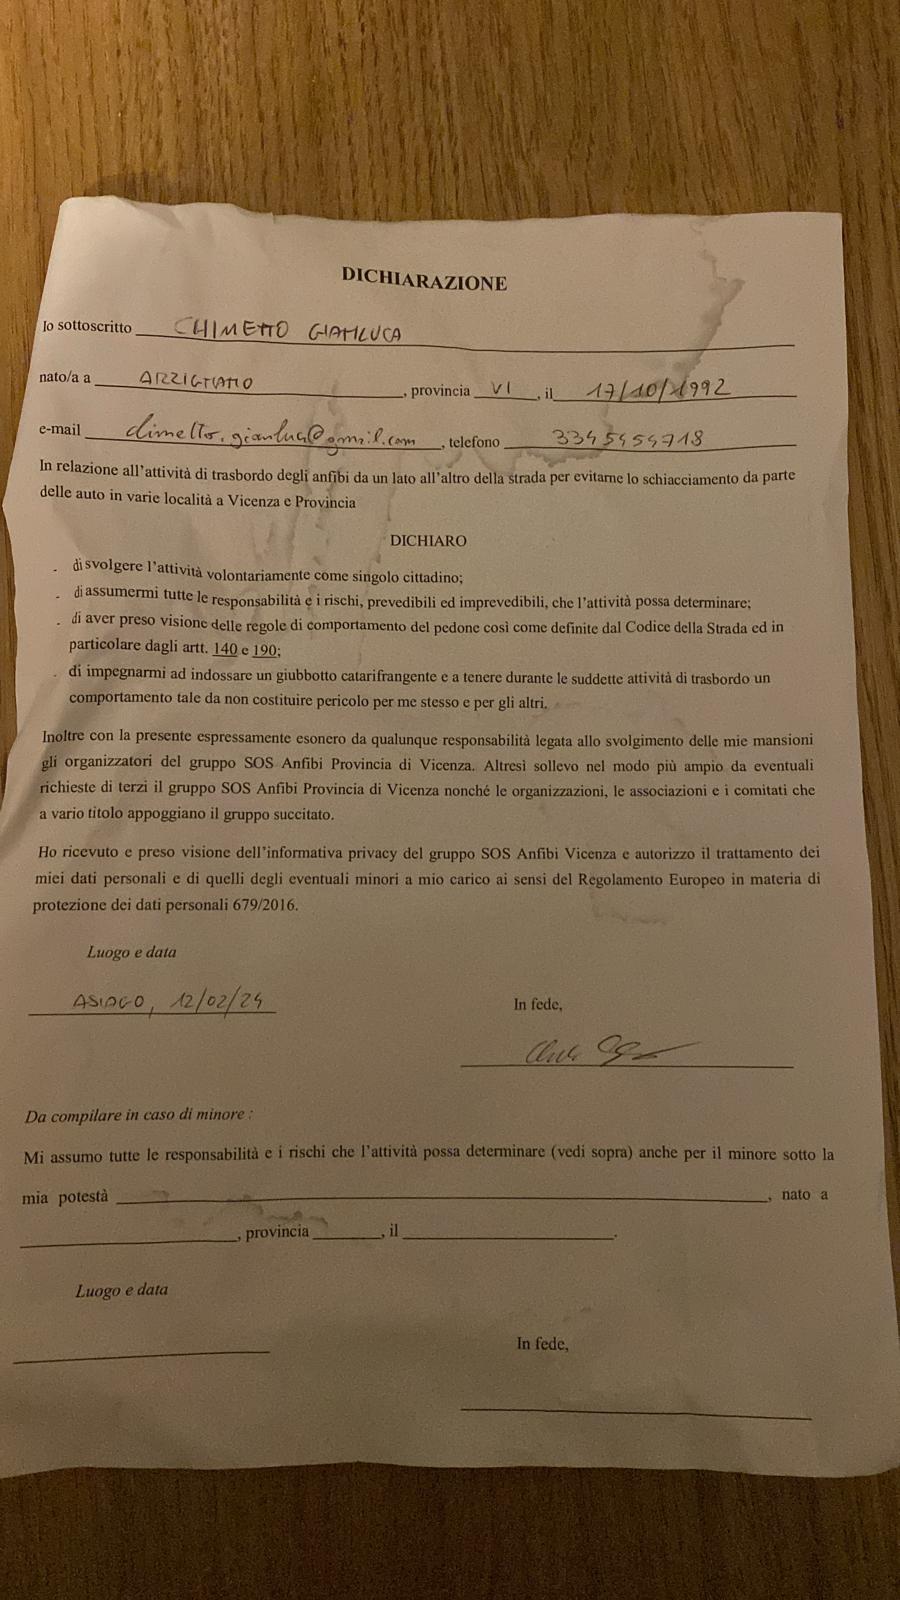 DICHIARAZIONE
Io sottoscritto CHIMETTO GIANLUCA
nato/a a ARZIGNANO, provincia VI, il 17/10/1992
e-mail @gmail.com, telefono
In relazione all'attività di trasbordo degli anfibi da un lato all'altro della strada per evitarne lo schiacciamento da parte
delle auto in varie località a Vicenza e Provincia
DICHIARO
- di svolgere l'attività volontariamente come singolo cittadino;
- di assumermi tutte le responsabilità e i rischi, prevedibili ed imprevedibili, che l'attività possa determinare;
- di aver preso visione delle regole di comportamento del pedone così come definite dal Codice della Strada ed in
particolare dagli artt. 140 e 190;
- di impegnarmi ad indossare un giubbotto catarifrangente e a tenere durante le suddette attività di trasbordo un
comportamento tale da non costituire pericolo per me stesso e per gli altri.
Inoltre con la presente espressamente esonero da qualunque responsabilità legata allo svolgimento delle mie mansioni
gli organizzatori del gruppo SOS Anfibi Provincia di Vicenza. Altresì sollevo nel modo più ampio da eventuali
richieste di terzi il gruppo SOS Anfibi Provincia di Vicenza nonché le organizzazioni, le associazioni e i comitati che
a vario titolo appoggiano il gruppo succitato.
Ho ricevuto e preso visione dell'informativa privacy del gruppo SOS Anfibi Vicenza e autorizzo il trattamento dei
miei dati personali e di quelli degli eventuali minori a mio carico ai sensi del Regolamento Europeo in materia di
protezione dei dati personali 679/2016.
Luogo e data
ASIAGO, 12/02/24
In fede,
Da compilare in caso di minore :
Mi assumo tutte le responsabilità e i rischi che l'attività possa determinare (vedi sopra) anche per il minore sotto la
mia potestà , nato a
, provincia , il .
Luogo e data
In fede,